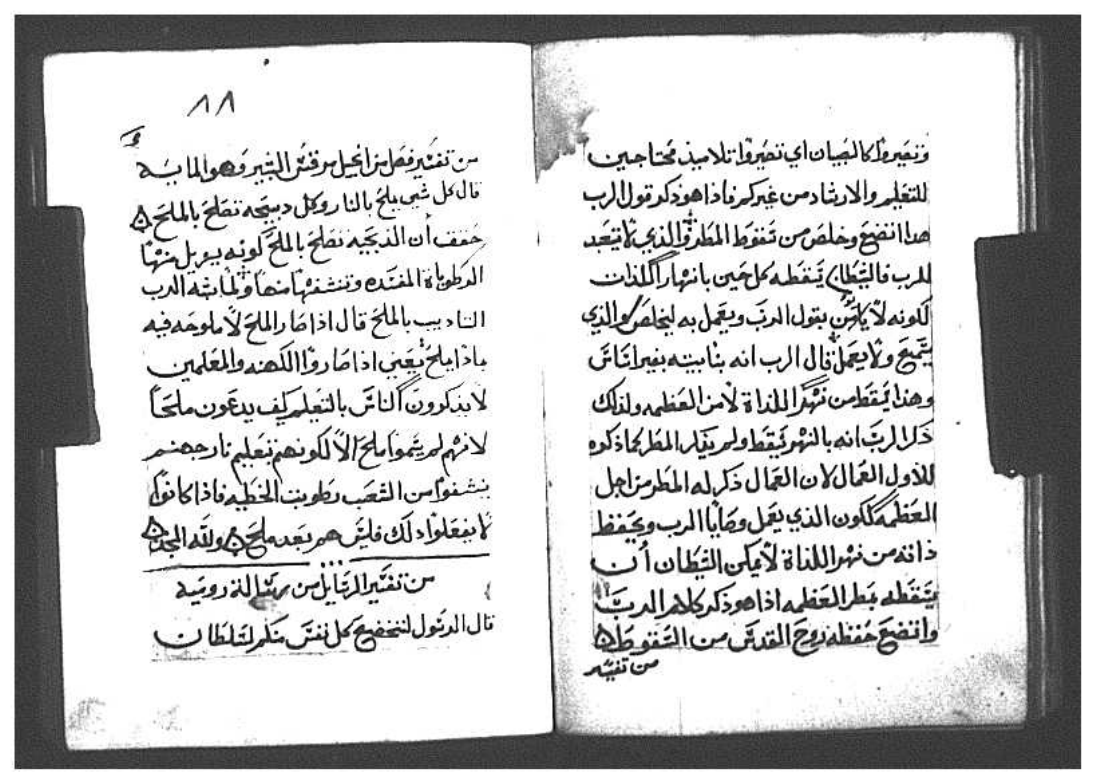 وتصيروا كالصبيان اي تصيروا تلاميذ محتاجين
للتعليم والارشاد من غيركم فاذا هو ذكر قول الرب
هدا اتضع وخلص من سقوط المطر والذي لا تعبد
للرب فالشيطان يسقطه كل حين بانهار اللذات
لكونه لا يامن بقول الرب ويعمل به ليخلص والذي
يسمع ولا يعمل قال الرب انه بنا بيته بغير اساس
وهذا يسقط من نهر اللذاة لا من العظمه ولذلك
ذكر الرب انه بالنهر يسقط ولم يقل المطر كما ذكره
للاول العمال لان العمال ذكر له المطر من اجل
العظمه لكون الذي يعمل وصايا الرب ويحفظ
ذاته من نهر اللذاة لا يمكن الشيطان أن
يسقطه بمطر العظمه اذا هو ذكر كلام الرب
واتضع حفظه روح القدس من السقوط
من تفسير
٨٨
من تفسير فصل من انجيل مرقس البشير وهو الماية
قال كل شي يملح بالنار وكل دبيحه تصلح بالملح
حقق أن الذبيحه تصلح بالملح كونه يزيل منها
الرطوباة المفسده وتنشفها منها ولما شبه الرب
التاديب بالملح قال اذا صار الملح لا ملوحه فيه
بماذا يملح يعني اذا صاروا الكهنه والمعلمين
لا يذكرون الناس بالتعليم كيف يدعون ملحاً
لانهم لم يسموا ملح الا لكونهم بتعليم نار جهنم
ينشفوا من الشعب رطوبت الخطيه فاذا كانوا
لا يفعلوا ذلك فليس هم بعد ملح ولله المجد
من تفسير الرسايل من رسالة رومية
قال الرسول لتخضع كل نفس منكم لسلطان